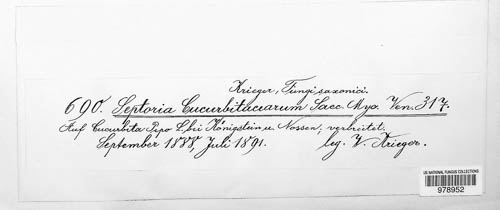 Krieger, Fungi saxonici.
690. Septoria Cucurbitacearum Sacc. Myc. Ven. 317.
Auf Cucurbita Pepo L. bei Königstein u. Nossen, verbreitet.
September 1888, Juli 1891. leg. W. Krieger.
US NATIONAL FUNGUS COLLECTIONS
978952